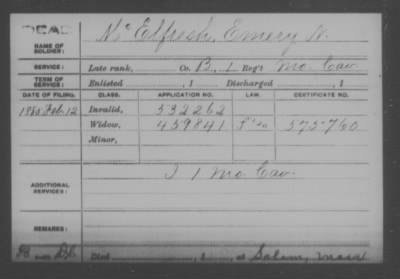 DEAD
NAME OF SOLDIER: McElfresh, Emery N.
SERVICE: Late rank, Co. B, 1 Reg't Mo. Cav.
TERM OF SERVICE: Enlisted , 1 Discharged , 1
DATE OF FILING. CLASS. APPLICATION NO. LAW. CERTIFICATE NO.
1885 Feb. 12 Invalid, 532262
Widow, 459841 575760
Minor,
ADDITIONAL SERVICES: I 1 Mo. Cav.
REMARKS:
Died , 1 , at Salem,